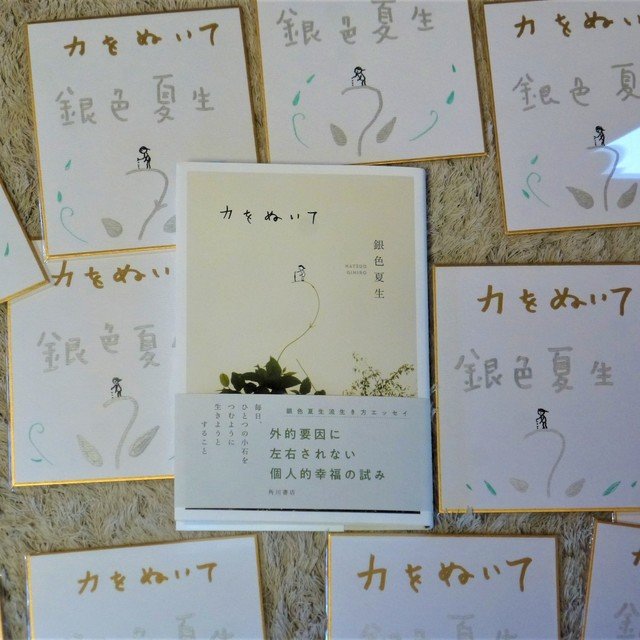 力をぬいて
銀色夏生
銀色夏生
力をぬいて
銀色夏生
力をぬいて
銀色夏生
NATSUO
GINIRO
力をぬいて
銀色夏
力をぬいて
銀色夏生
銀色夏生流生き方エッセイ
外的要因に
左右されない
個人的幸福の試み
角川書店
毎日、
ひとつの小石を
つむように
生きようと
すること
力をぬいて
力をぬいて